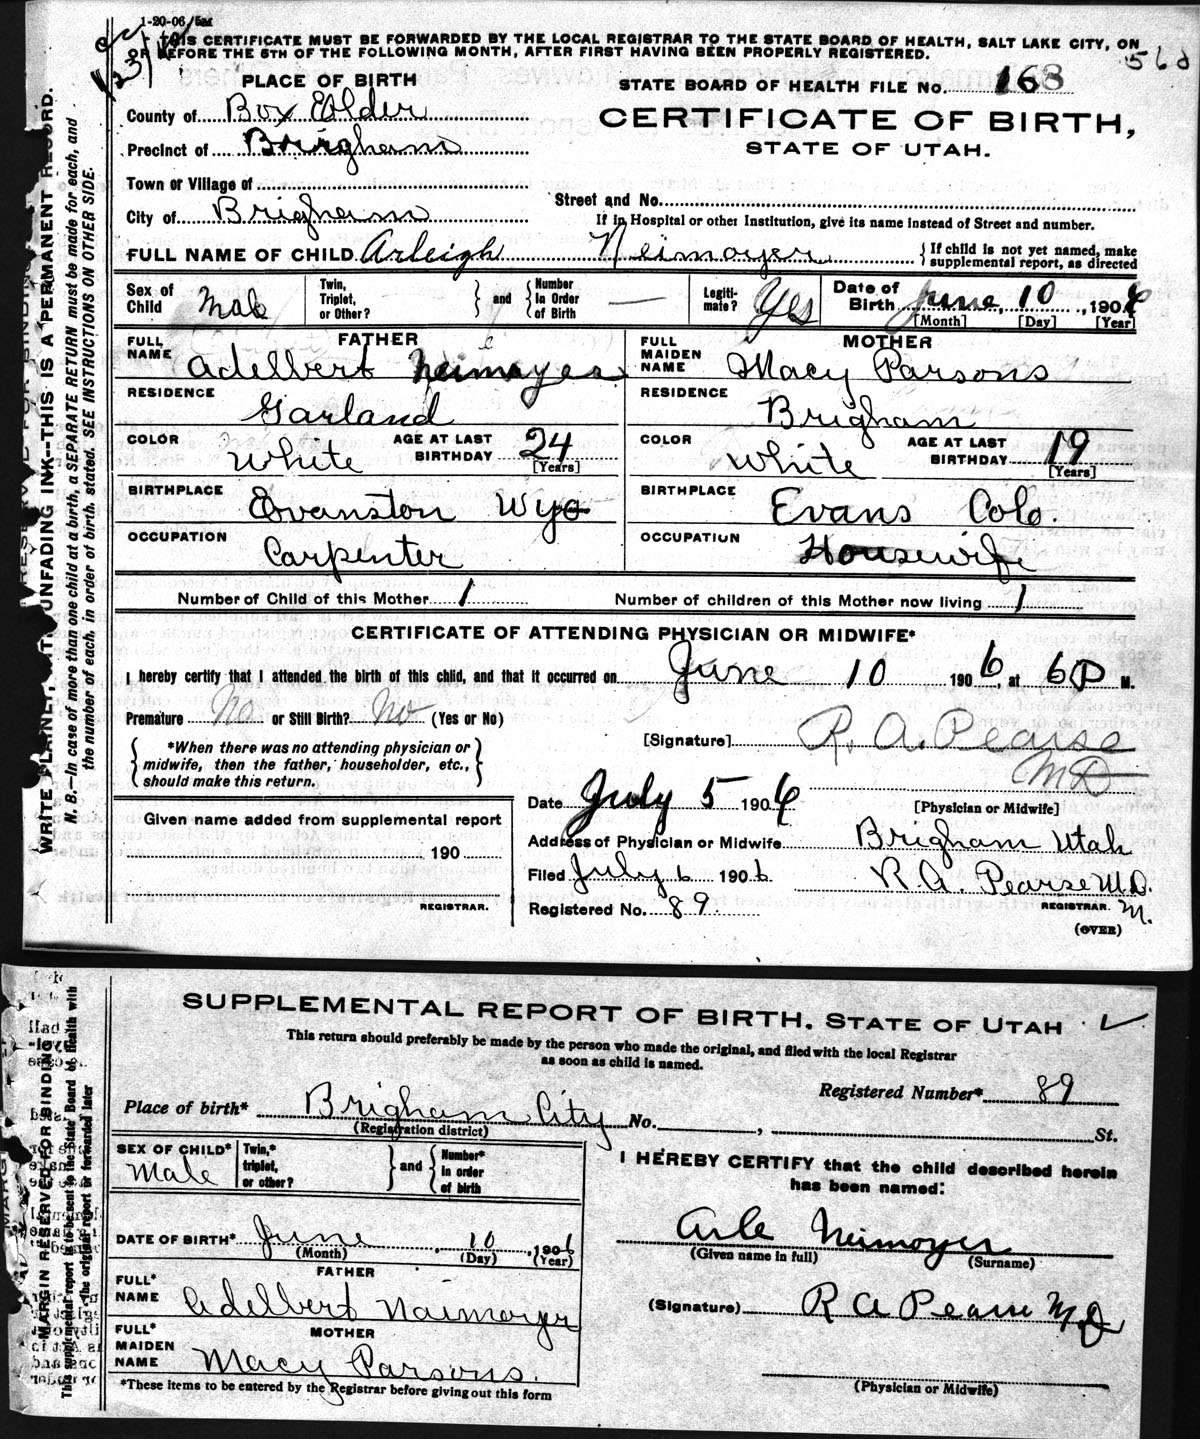 1-20-06
THIS CERTIFICATE MUST BE FORWARDED BY THE LOCAL REGISTRAR TO THE STATE BOARD OF HEALTH, SALT LAKE CITY, ON
OR BEFORE THE 5TH OF THE FOLLOWING MONTH, AFTER FIRST HAVING BEEN PROPERLY REGISTERED.
PLACE OF BIRTH
STATE BOARD OF HEALTH FILE No. 168
County of Box Elder
CERTIFICATE OF BIRTH,
Precinct of Brigham
STATE OF UTAH.
Town or Village of
Street and No.
City of Brigham
If in Hospital or other Institution, give its name instead of Street and number.
FULL NAME OF CHILD Arleigh Neimoyer { If child is not yet named, make
supplemental report, as directed
Sex of Child Male
Twin, Triplet, or Other? } and { Number in Order of Birth —
Legitimate? Yes
Date of Birth June 10, 1906
[Month] [Day] [Year]
FATHER
MOTHER
FULL NAME Adelbert Neimoyer
FULL MAIDEN NAME Macy Parsons
RESIDENCE Garland
RESIDENCE Brigham
COLOR White AGE AT LAST BIRTHDAY 24 [Years]
COLOR White AGE AT LAST BIRTHDAY 19 [Years]
BIRTHPLACE Evanston Wyo
BIRTHPLACE Evans Colo.
OCCUPATION Carpenter
OCCUPATION Housewife
Number of Child of this Mother 1 Number of children of this Mother now living 1
CERTIFICATE OF ATTENDING PHYSICIAN OR MIDWIFE*
I hereby certify that I attended the birth of this child, and that it occurred on June 10 1906, at 6 P M.
Premature No or Still Birth? No (Yes or No)
*When there was no attending physician or
midwife, then the father, householder, etc.,
should make this return.
[Signature] R. A. Pearse
MD
[Physician or Midwife]
Given name added from supplemental report
190
REGISTRAR.
Date July 5 1906
Address of Physician or Midwife Brigham Utah
Filed July 6 1906 R. A. Pearse M.D.
REGISTRAR. M.
Registered No. 89.
(OVER)
WRITE PLAINLY, WITH UNFADING INK--THIS IS A PERMANENT RECORD.
N. B.—In case of more than one child at a birth, a SEPARATE RETURN must be made for each, and
the number of each, in order of birth, stated. SEE INSTRUCTIONS ON OTHER SIDE.
SUPPLEMENTAL REPORT OF BIRTH. STATE OF UTAH
This return should preferably be made by the person who made the original, and filed with the local Registrar
as soon as child is named.
Registered Number* 89
Place of birth* Brigham City No. , St.
(Registration district)
SEX OF CHILD* Male
Twin,* triplet, or other? } and { Number* in order of birth
I HEREBY CERTIFY that the child described herein
has been named:
DATE OF BIRTH* June 10, 1906
(Month) (Day) (Year)
Arle Neimoyer
(Given name in full) (Surname)
FATHER
FULL* NAME Adelbert Naimoyer
(Signature) R A Pearse M.D
MOTHER
FULL* MAIDEN NAME Macy Parsons.
(Physician or Midwife)
*These items to be entered by the Registrar before giving out this form
MARGIN RESERVED FOR BINDING
This supplemental report is to be sent to the State Board of Health with
the original report or forwarded later